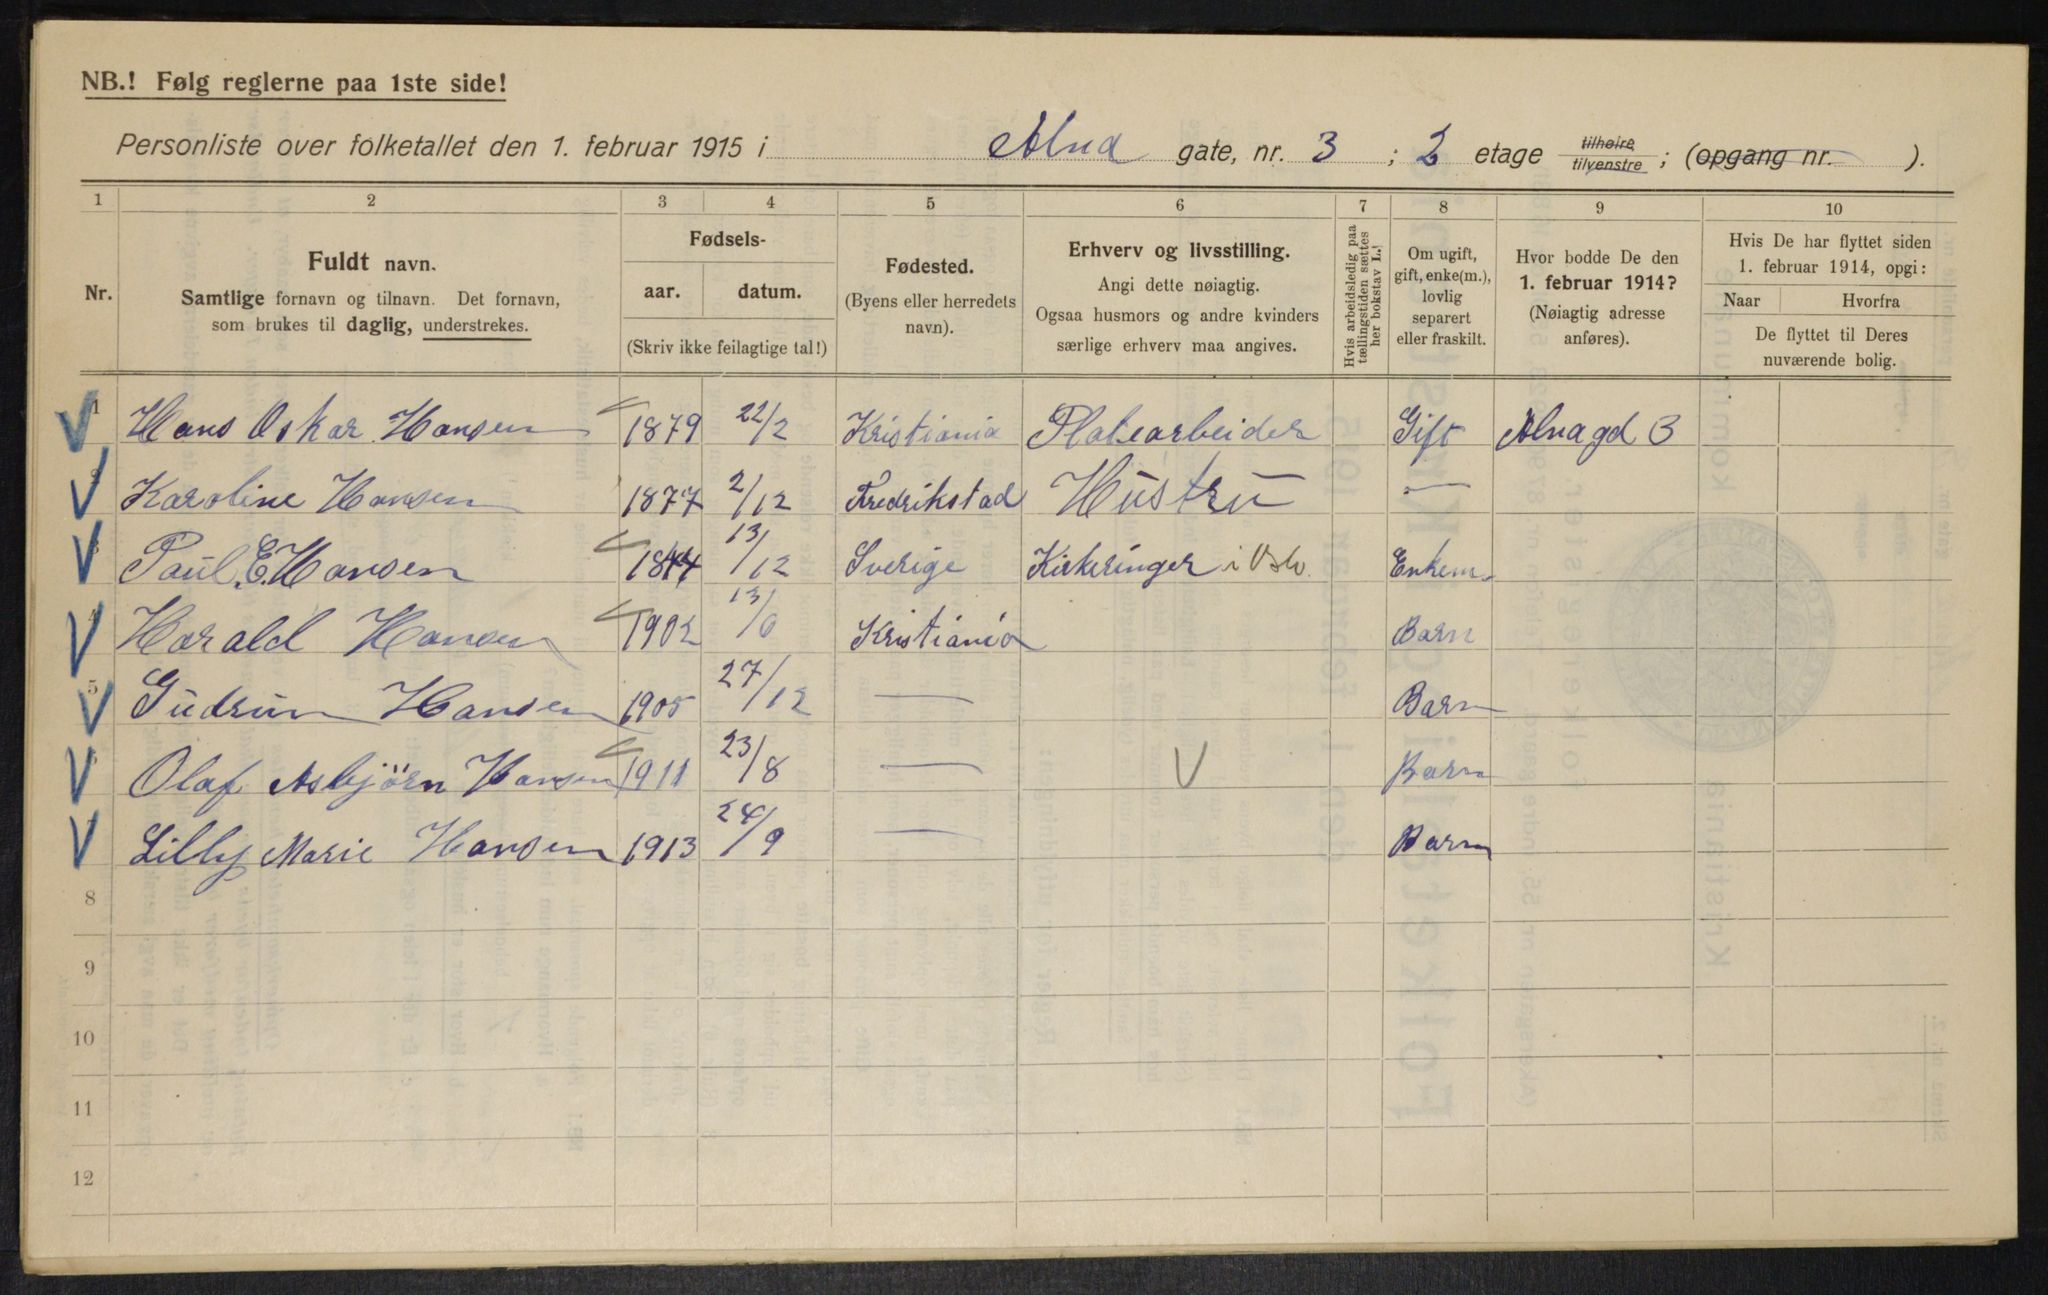 NB.! Følg reglerne paa 1ste side!
Personliste over folketallet den 1. februar 1915 i Alna gate, nr. 3 ; 2 etage tilhøire tilvenstre ; (opgang nr. ).
1 2 3 4 5 6 7 8 9 10
Nr.
Fuldt navn.
Samtlige fornavn og tilnavn. Det fornavn,
som brukes til daglig, understrekes.
Fødsels-
aar. datum.
(Skriv ikke feilagtige tal!)
Fødested.
(Byens eller herredets
navn).
Erhverv og livsstilling.
Angi dette nøiagtig.
Ogsaa husmors og andre kvinders
særlige erhverv maa angives.
Hvis arbeidsledig paa
tællingstiden sættes
her bokstav L.!
Om ugift,
gift, enke(m.),
lovlig
separert
eller fraskilt.
Hvor bodde De den
1. februar 1914?
(Nøiagtig adresse
anføres).
Hvis De har flyttet siden
1. februar 1914, opgi:
Naar Hvorfra
De flyttet til Deres
nuværende bolig.
1 Hans Oskar Hansen 1879 22/2 Kristiania Platearbeider Gift Alnagd 3
2 Karoline Hansen 1877 2/12 Fredrikstad Hustru —
3 Paul E. Hansen 1844 13/12 Sverige Kirkeringer i Oslo Enkem.
4 Harald Hansen 1902 13/6 Kristiania Barn
5 Gudrun Hansen 1905 27/12 — Barn
6 Olaf Asbjörn Hansen 1911 23/8 — Barn
7 Lilly Marie Hansen 1913 24/9 — Barn
8
9
10
11
12